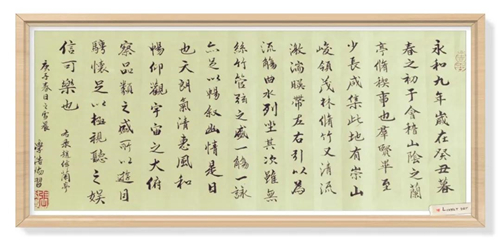 永和九年歲在癸丑暮
春之初于會稽山陰之蘭
亭脩稧事也群賢畢至
少長咸集此地有崇山
峻領茂林脩竹又清流
激湍暎帶左右引以為
流觴曲水列坐其次雖無
絲竹管弦之盛一觴一詠
亦足以暢叙幽情是日
也天朗氣清惠風和
暢仰觀宇宙之大俯
察品類之盛所以遊目
騁懷足以極視聽之娛
信可樂也
蘭亭
庚子春日